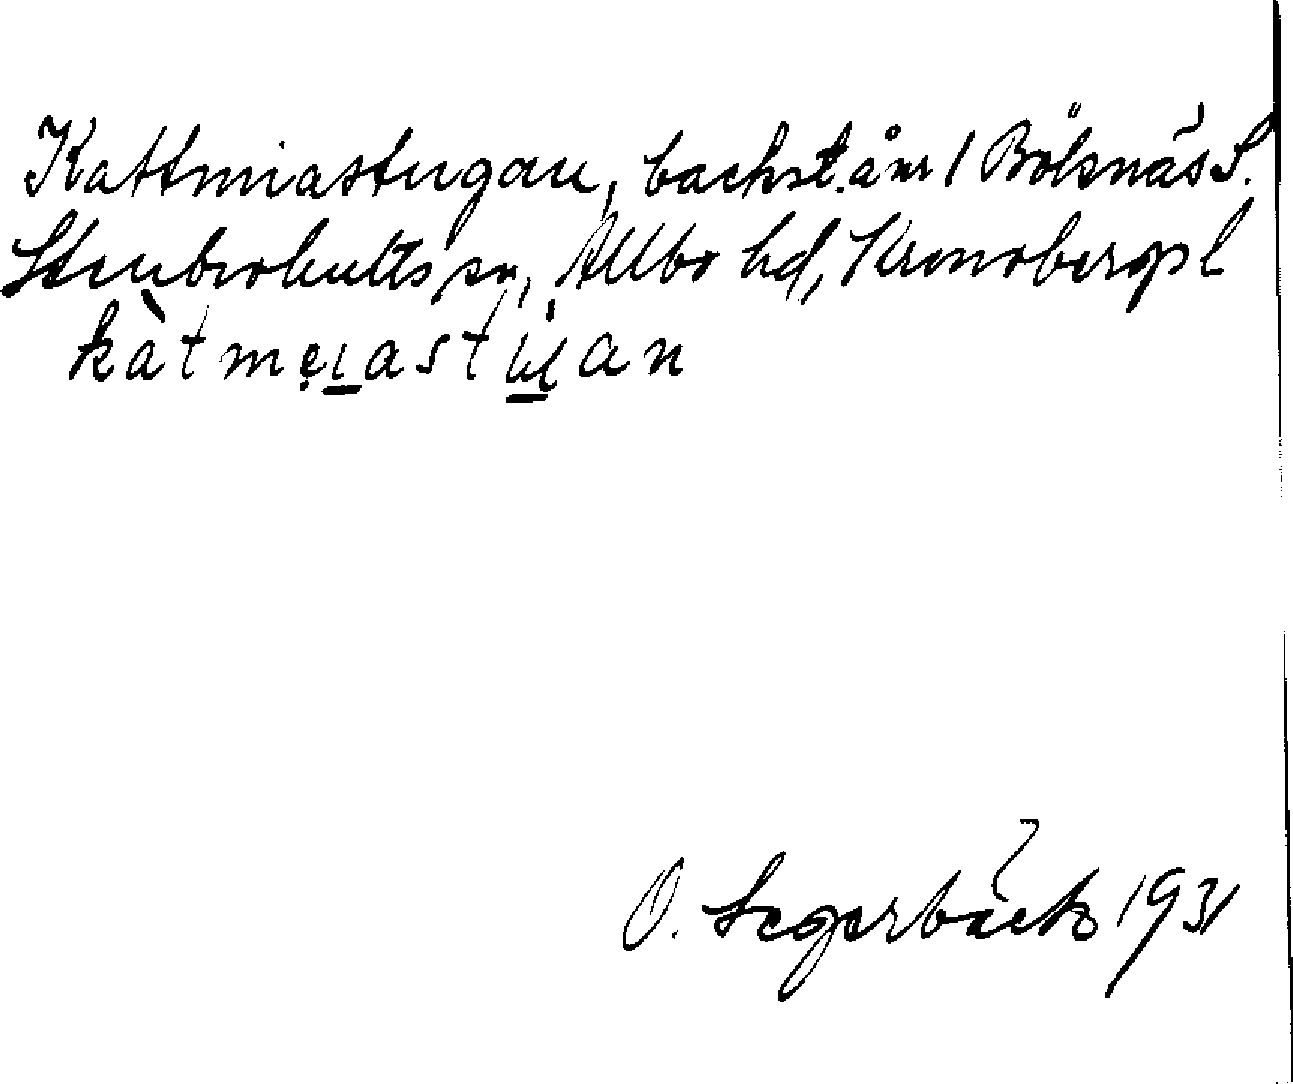 Kattmiastugan, backst. å nr 1 Bölsnäs S.
Stenbrohults sn, Allbo hd, Kronobergs l
kàtmeiastùan
O. Segerbäck 1931